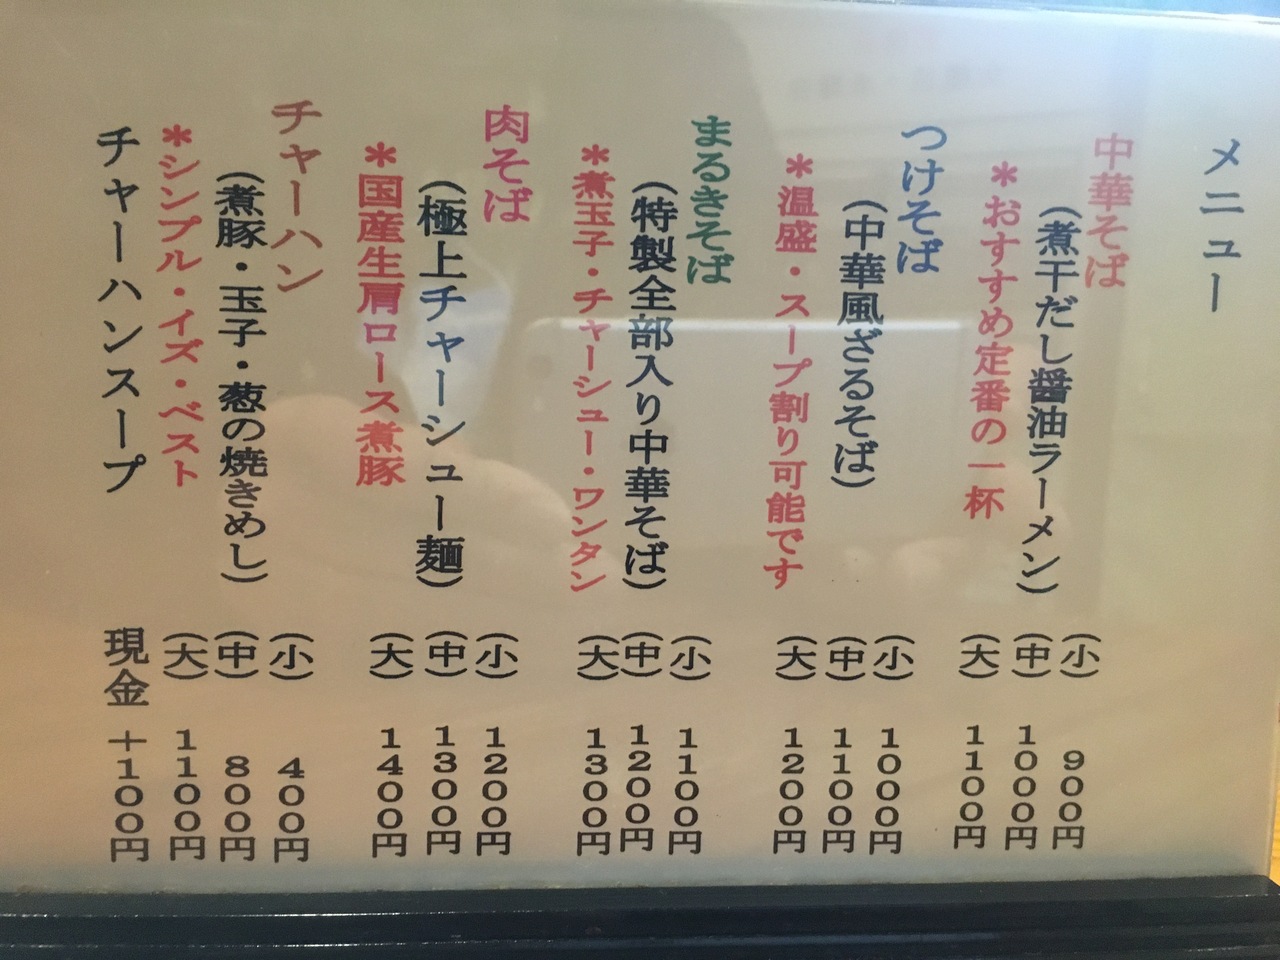 メニュー
中華そば
(煮干だし醤油ラーメン)
＊おすすめ定番の一杯
(小) 900円
(中) 1000円
(大) 1100円
つけそば
(中華風ざるそば)
＊温盛・スープ割り可能です
(小) 1000円
(中) 1100円
(大) 1200円
まるきそば
(特製全部入り中華そば)
＊煮玉子・チャーシュー・ワンタン
(小) 1100円
(中) 1200円
(大) 1300円
肉そば
(極上チャーシュー麺)
＊国産生肩ロース煮豚
(小) 1200円
(中) 1300円
(大) 1400円
チャーハン
(煮豚・玉子・葱の焼きめし)
＊シンプル・イズ・ベスト
(小) 400円
(中) 800円
(大) 1100円
チャーハンスープ 現金＋100円